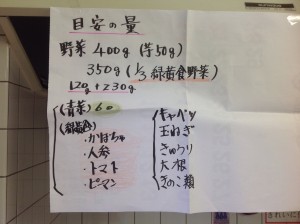 目安の量
野菜 400g (芋50g)
350g (1/3 緑黄食野菜)
120g + 230g
(青菜) 60
(緑黄食)
・かぼちゃ
・人参
・トマト
・ピーマン
キャベツ
玉ねぎ
きゅうり
大根
きのこ類